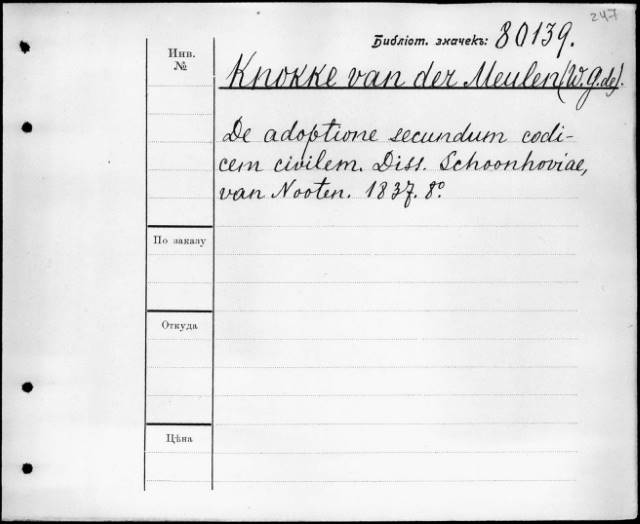 247
Библіот. значекъ: 80139.
Инв.
№
Knokke van der Meulen (W. G. de).
De adoptione secundum codi-
cem civilem. Diss. Schoonhoviae,
van Nooten. 1837. 8º.
По заказу
Откуда
Цѣна